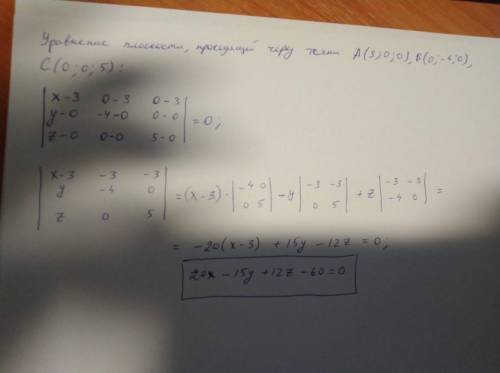 Уравнение плоскости, проходящей через точки A(3;0;0), B(0;-4;0),
C(0;0;5):
| x-3 0-3 0-3 |
| y-0 -4-0 0-0 | = 0,
| z-0 0-0 5-0 |
| x-3 -3 -3 |
| y -4 0 | = (x-3)·| -4 0 ; 0 5 | - y| -3 -3 ; 0 5 | + z| -3 -3 ; -4 0 | =
| z 0 5 |
= -20(x-3) + 15y - 12z = 0,
20x - 15y + 12z - 60 = 0